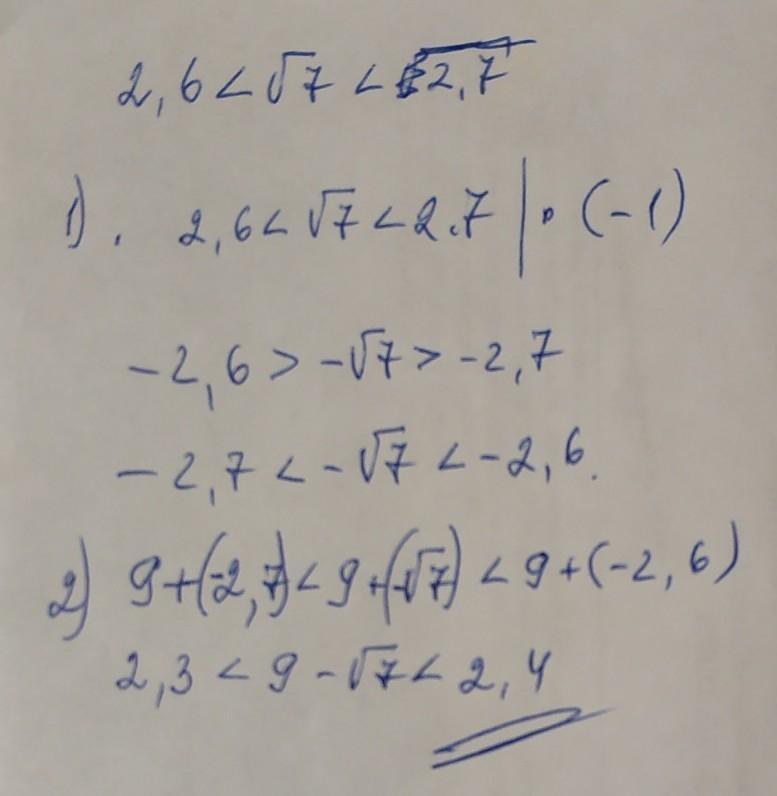 2,6 < √7 < 2,7
1). 2,6 < √7 < 2.7 | · (-1)
-2,6 > -√7 > -2,7
-2,7 < -√7 < -2,6.
2) 9+(-2,7) < 9+(-√7) < 9+(-2,6)
2,3 < 9 - √7 < 2,4